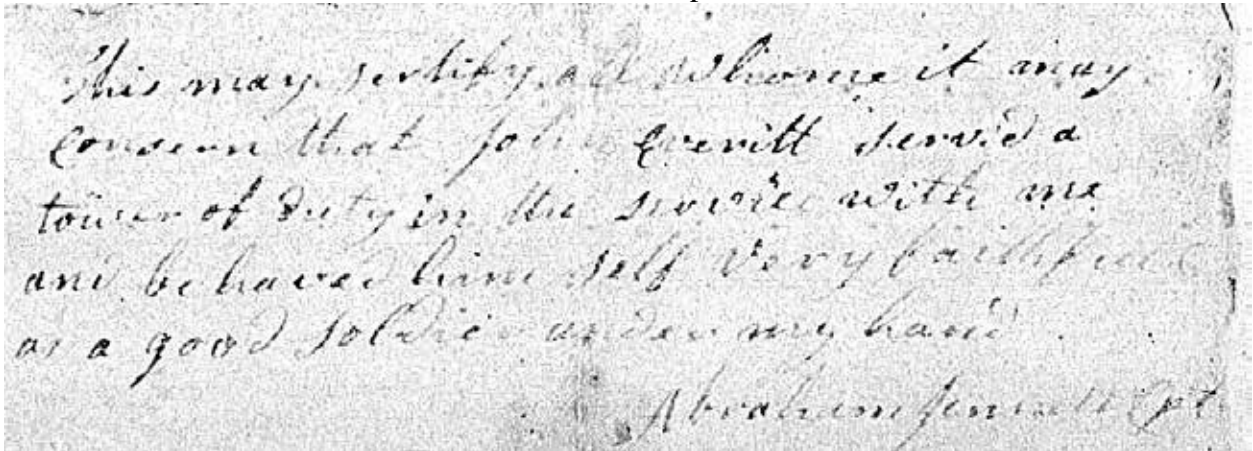 This may sertify all whome it may
Consern that John Everitt servid a
tower of duty in the servicc with me
and behaved him self very faithfull
as a good soldier under my hand
Abraham Cpt